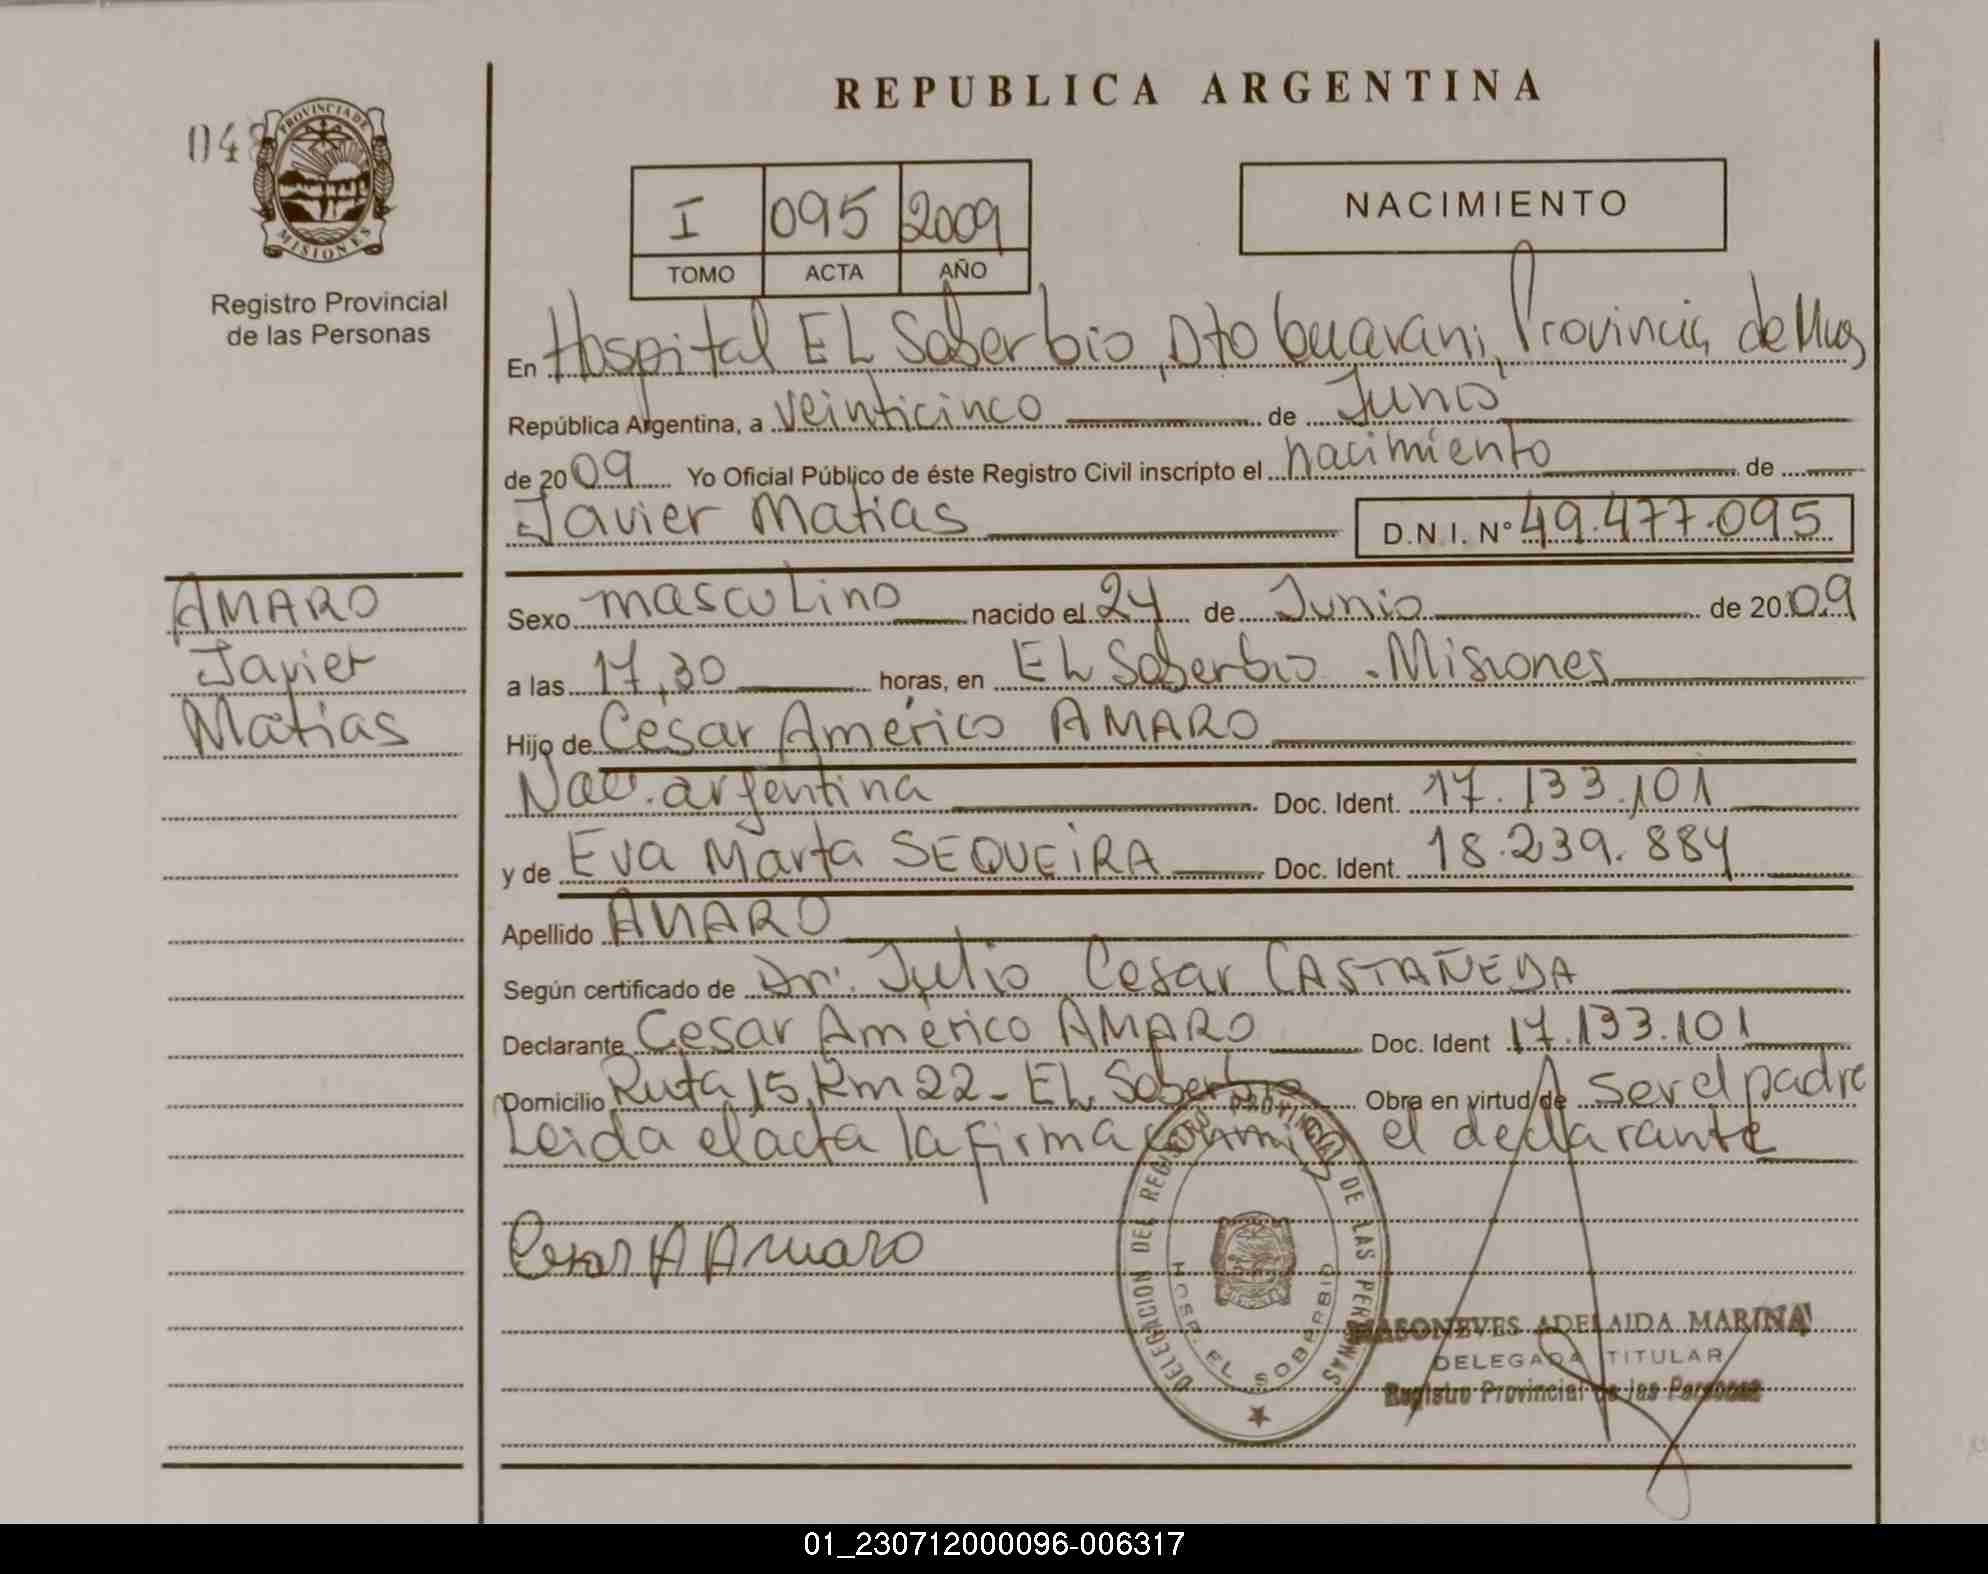 REPUBLICA ARGENTINA
048
PROVINCIA DE MISIONES
Registro Provincial
de las Personas
I 095 2009
TOMO ACTA AÑO
NACIMIENTO
En Hospital EL Soberbio, Dto Guarani, Provincia de Mnes
República Argentina, a veinticinco de Junio
de 2009 Yo Oficial Público de éste Registro Civil inscripto el nacimiento de
Javier Matias D.N.I. Nº 49.477.095
AMARO
Javier
Matias
Sexo masculino nacido el 24 de Junio de 2009
a las 17,30 horas, en EL Soberbio - Misiones
Hijo de César Américo AMARO
Nac. argentina Doc. Ident. 17.133.101
y de Eva Marta SEQUEIRA Doc. Ident. 18.239.884
Apellido AMARO
Según certificado de Dr. Julio Cesar CASTAÑEDA
Declarante Cesar Américo AMARO Doc. Ident 17.133.101
Domicilio Ruta 15, Km 22 - EL Soberbio Obra en virtud de ser el padre
Leida el acta la firma conmigo el declarante
Cesar A Amaro
DELEGACION DEL REGISTRO PROVINCIAL DE LAS PERSONAS
HOSP. EL SOBERBIO
MASONEVES ADELAIDA MARINA
DELEGADA TITULAR
Registro Provincial de las Personas
01_230712000096-006317